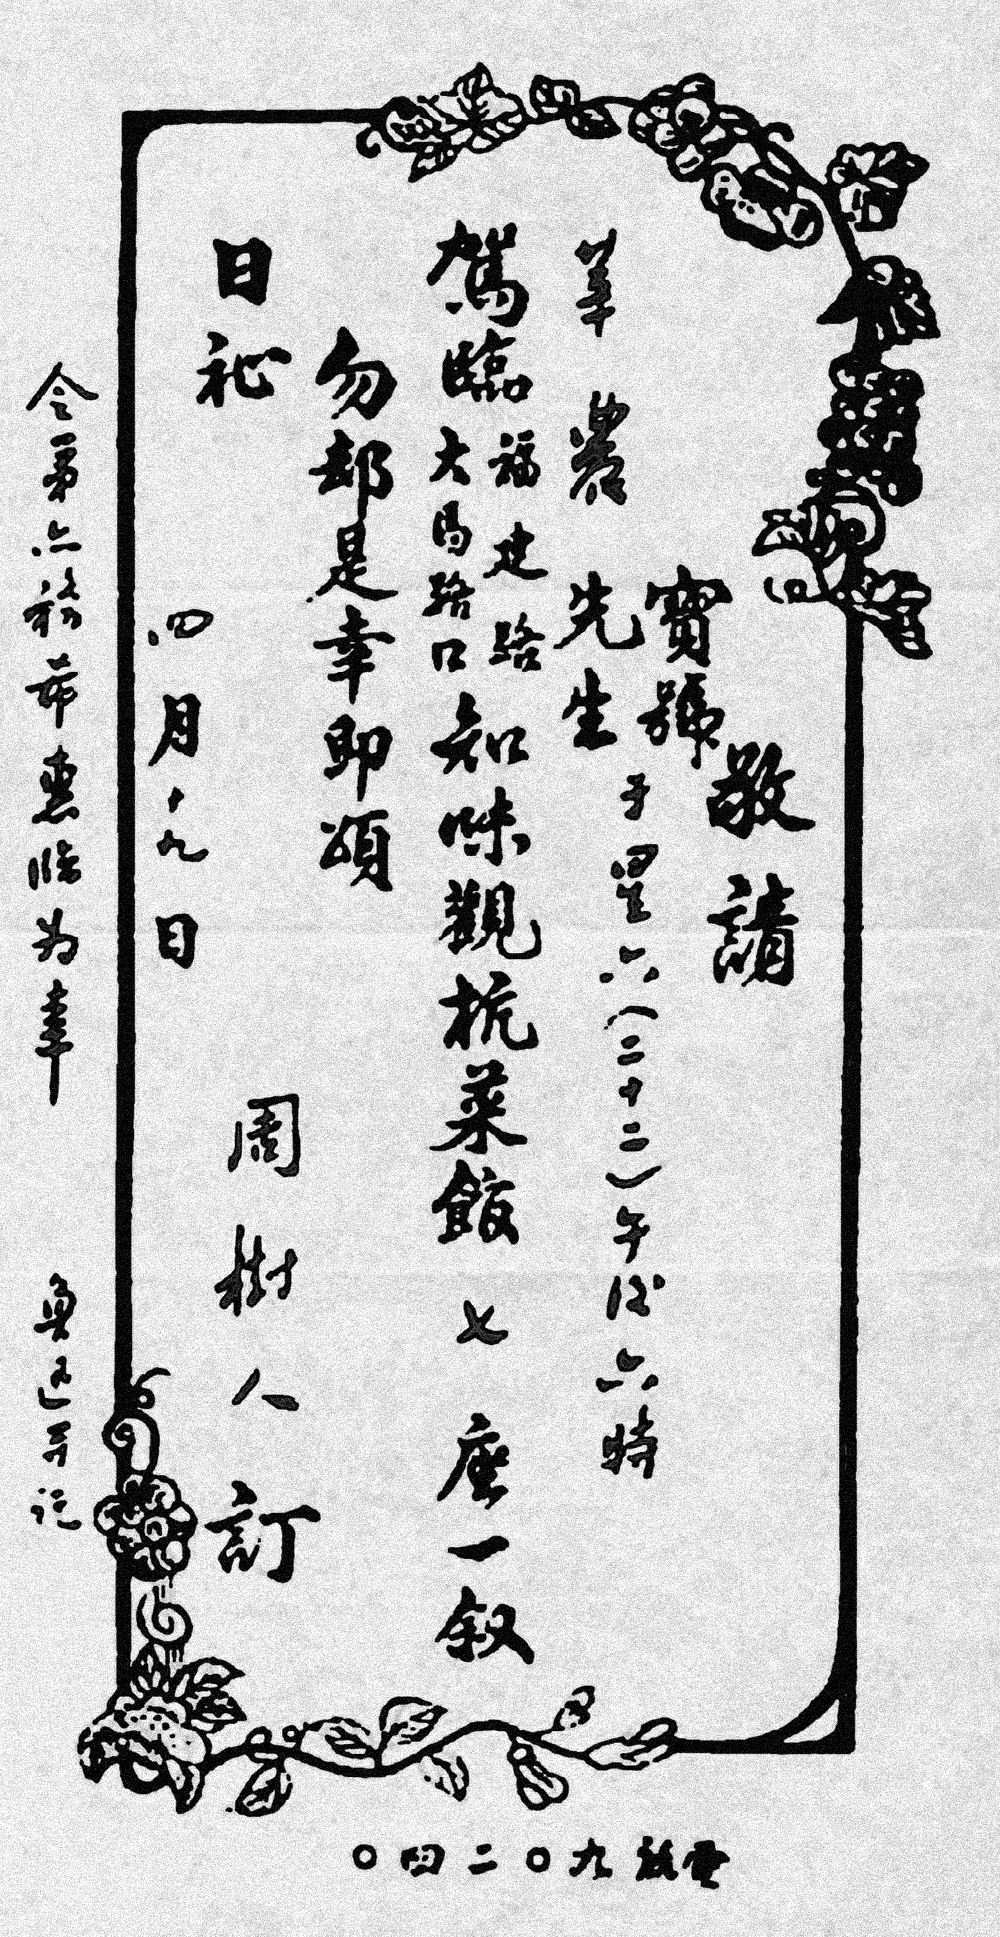 敬請
寶號
莘農先生
于星期六(二十二)午後六時
駕臨
福建路
大馬路口
知味觀杭菜館七座一叙
勿却是幸即頌
日祉
周樹人訂
四月十九日
令弟亦務希惠臨为幸
魯迅并託
電話九〇二四〇